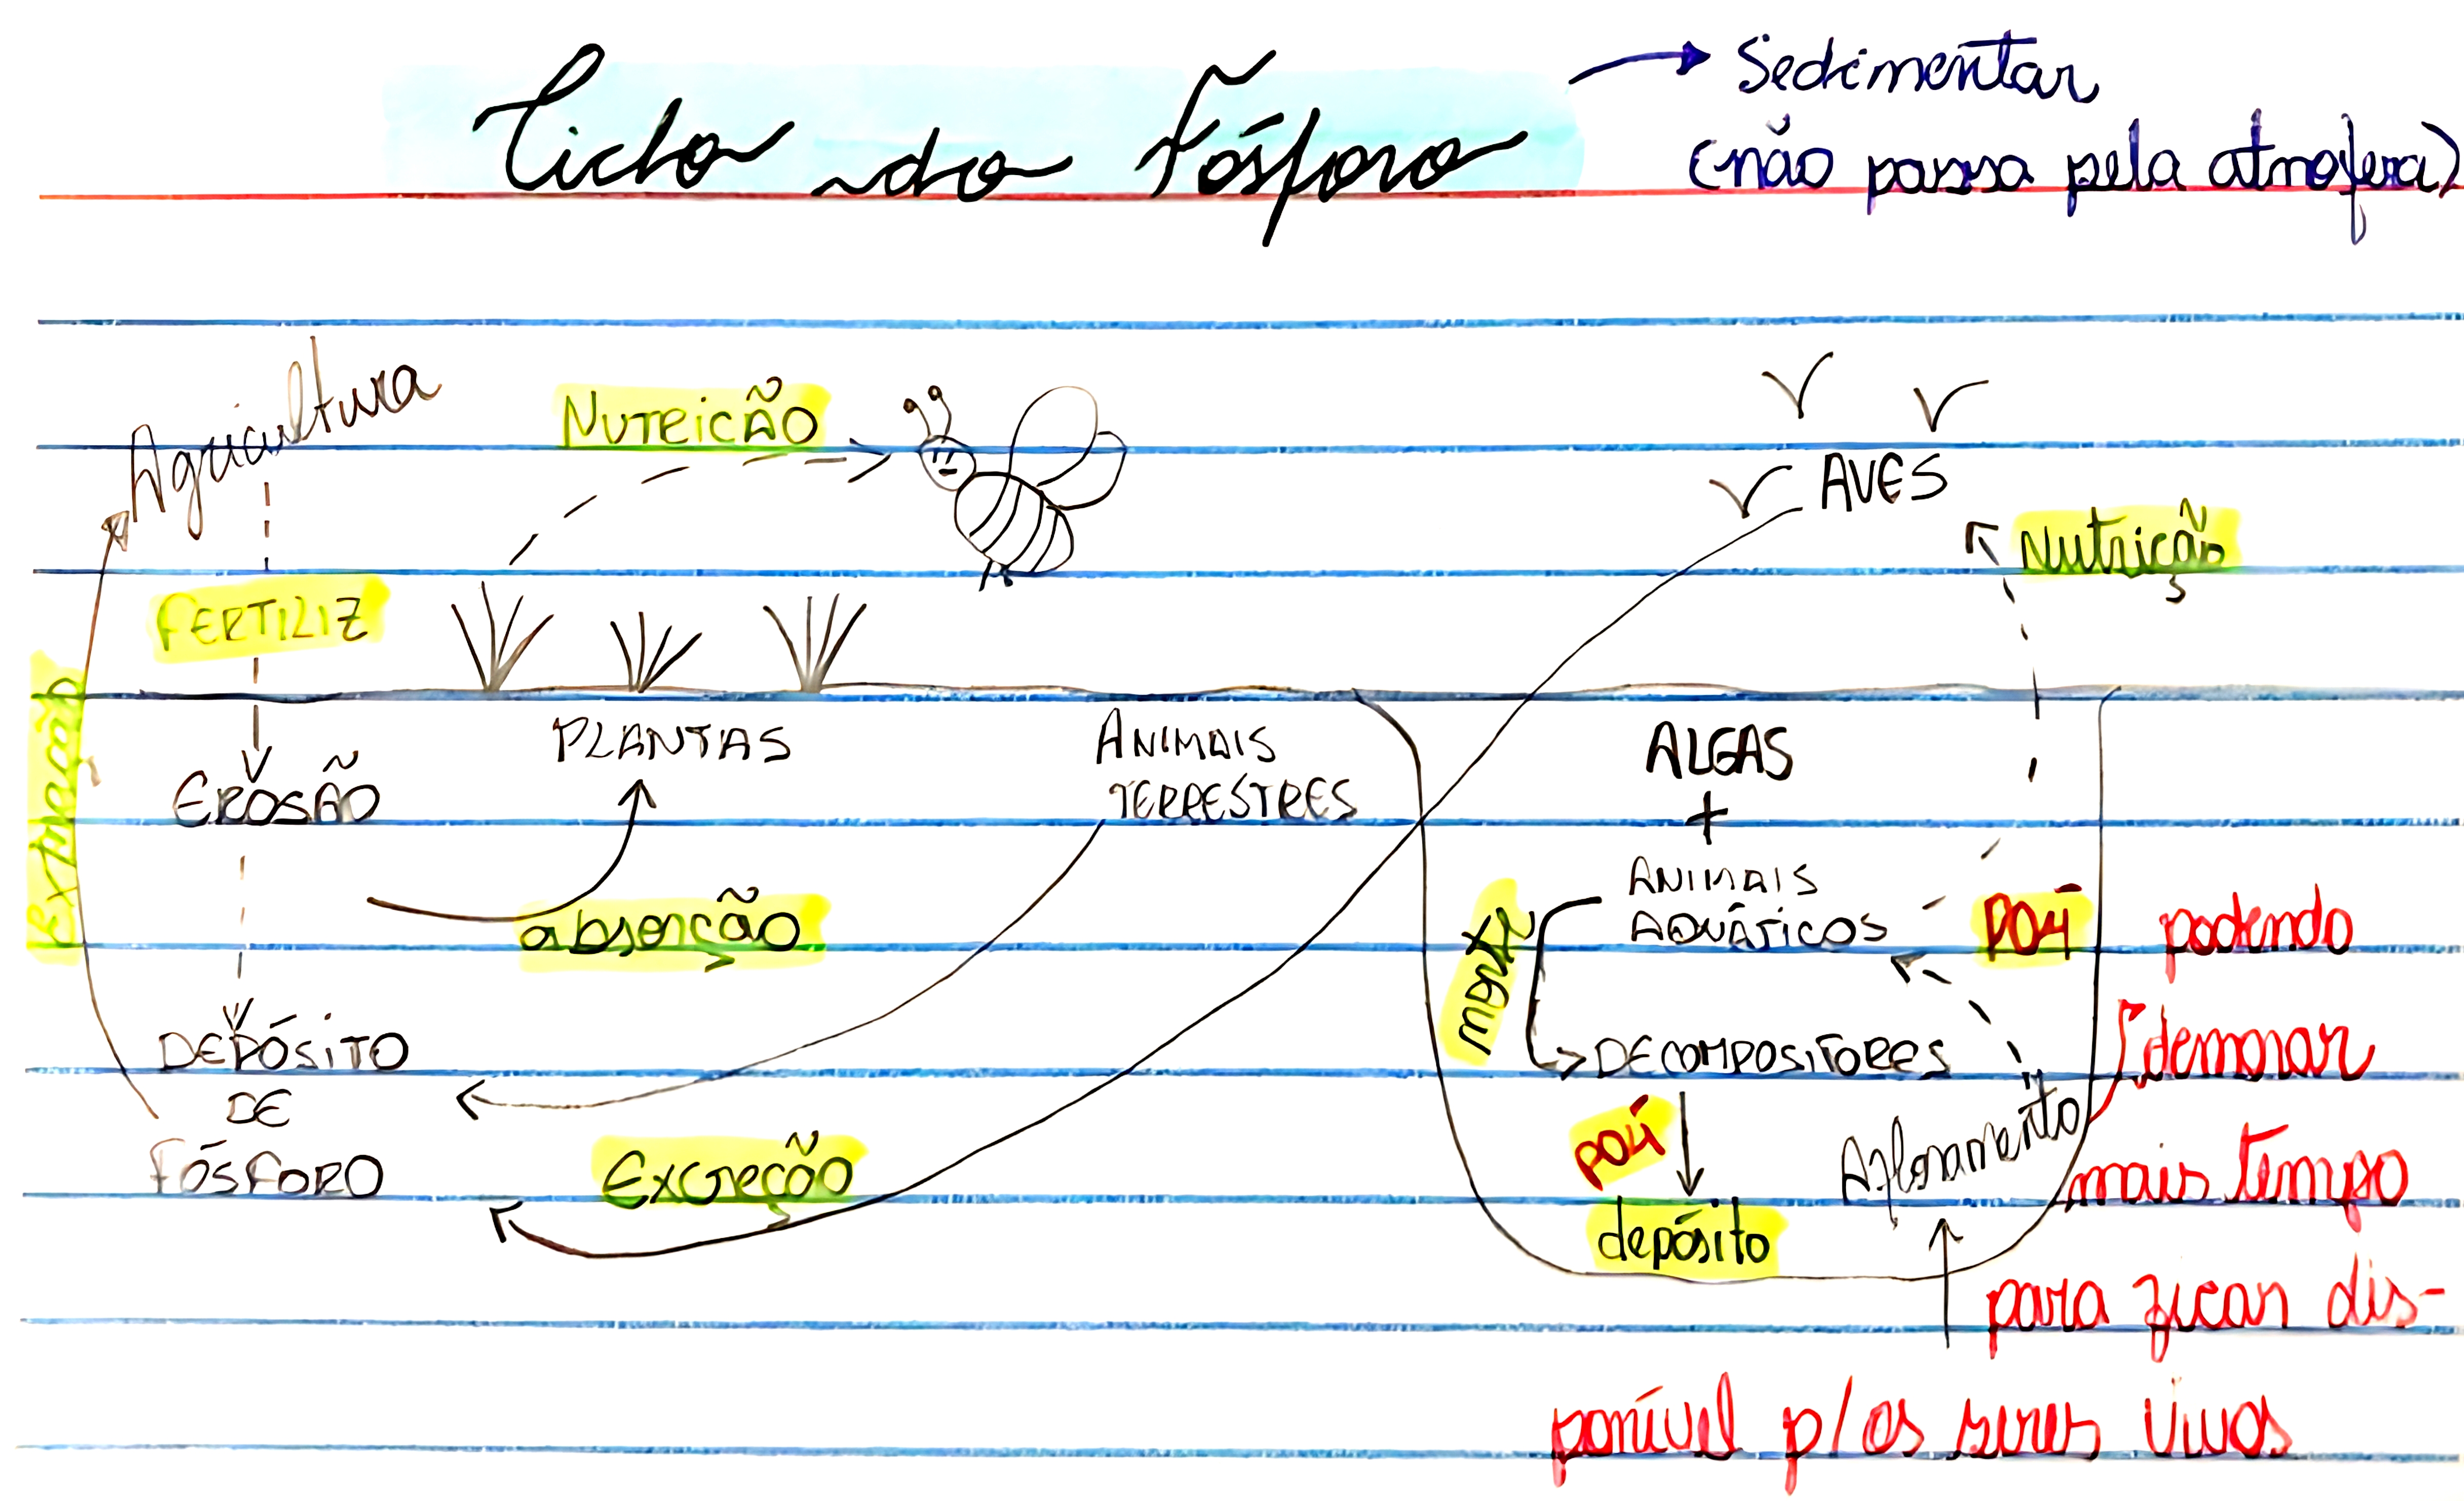 Ciclo do Fósforo
Sedimentar
(não passa pela atmofera)
Agricultura
NUTRIÇÃO
AVES
Nutrição
FERTILIZ
Extração
EROSÃO
PLANTAS
ANIMAIS
TERRESTRES
absorção
DEPÓSITO
DE
FÓSFORO
Excreção
ALGAS
+
ANIMAIS
AQUÁTICOS
PO4
DECOMPOSITORES
PO4
depósito
Afloramento
podendo
demorar
mais tempo
para ficar dis-
ponível p/ os seres vivos